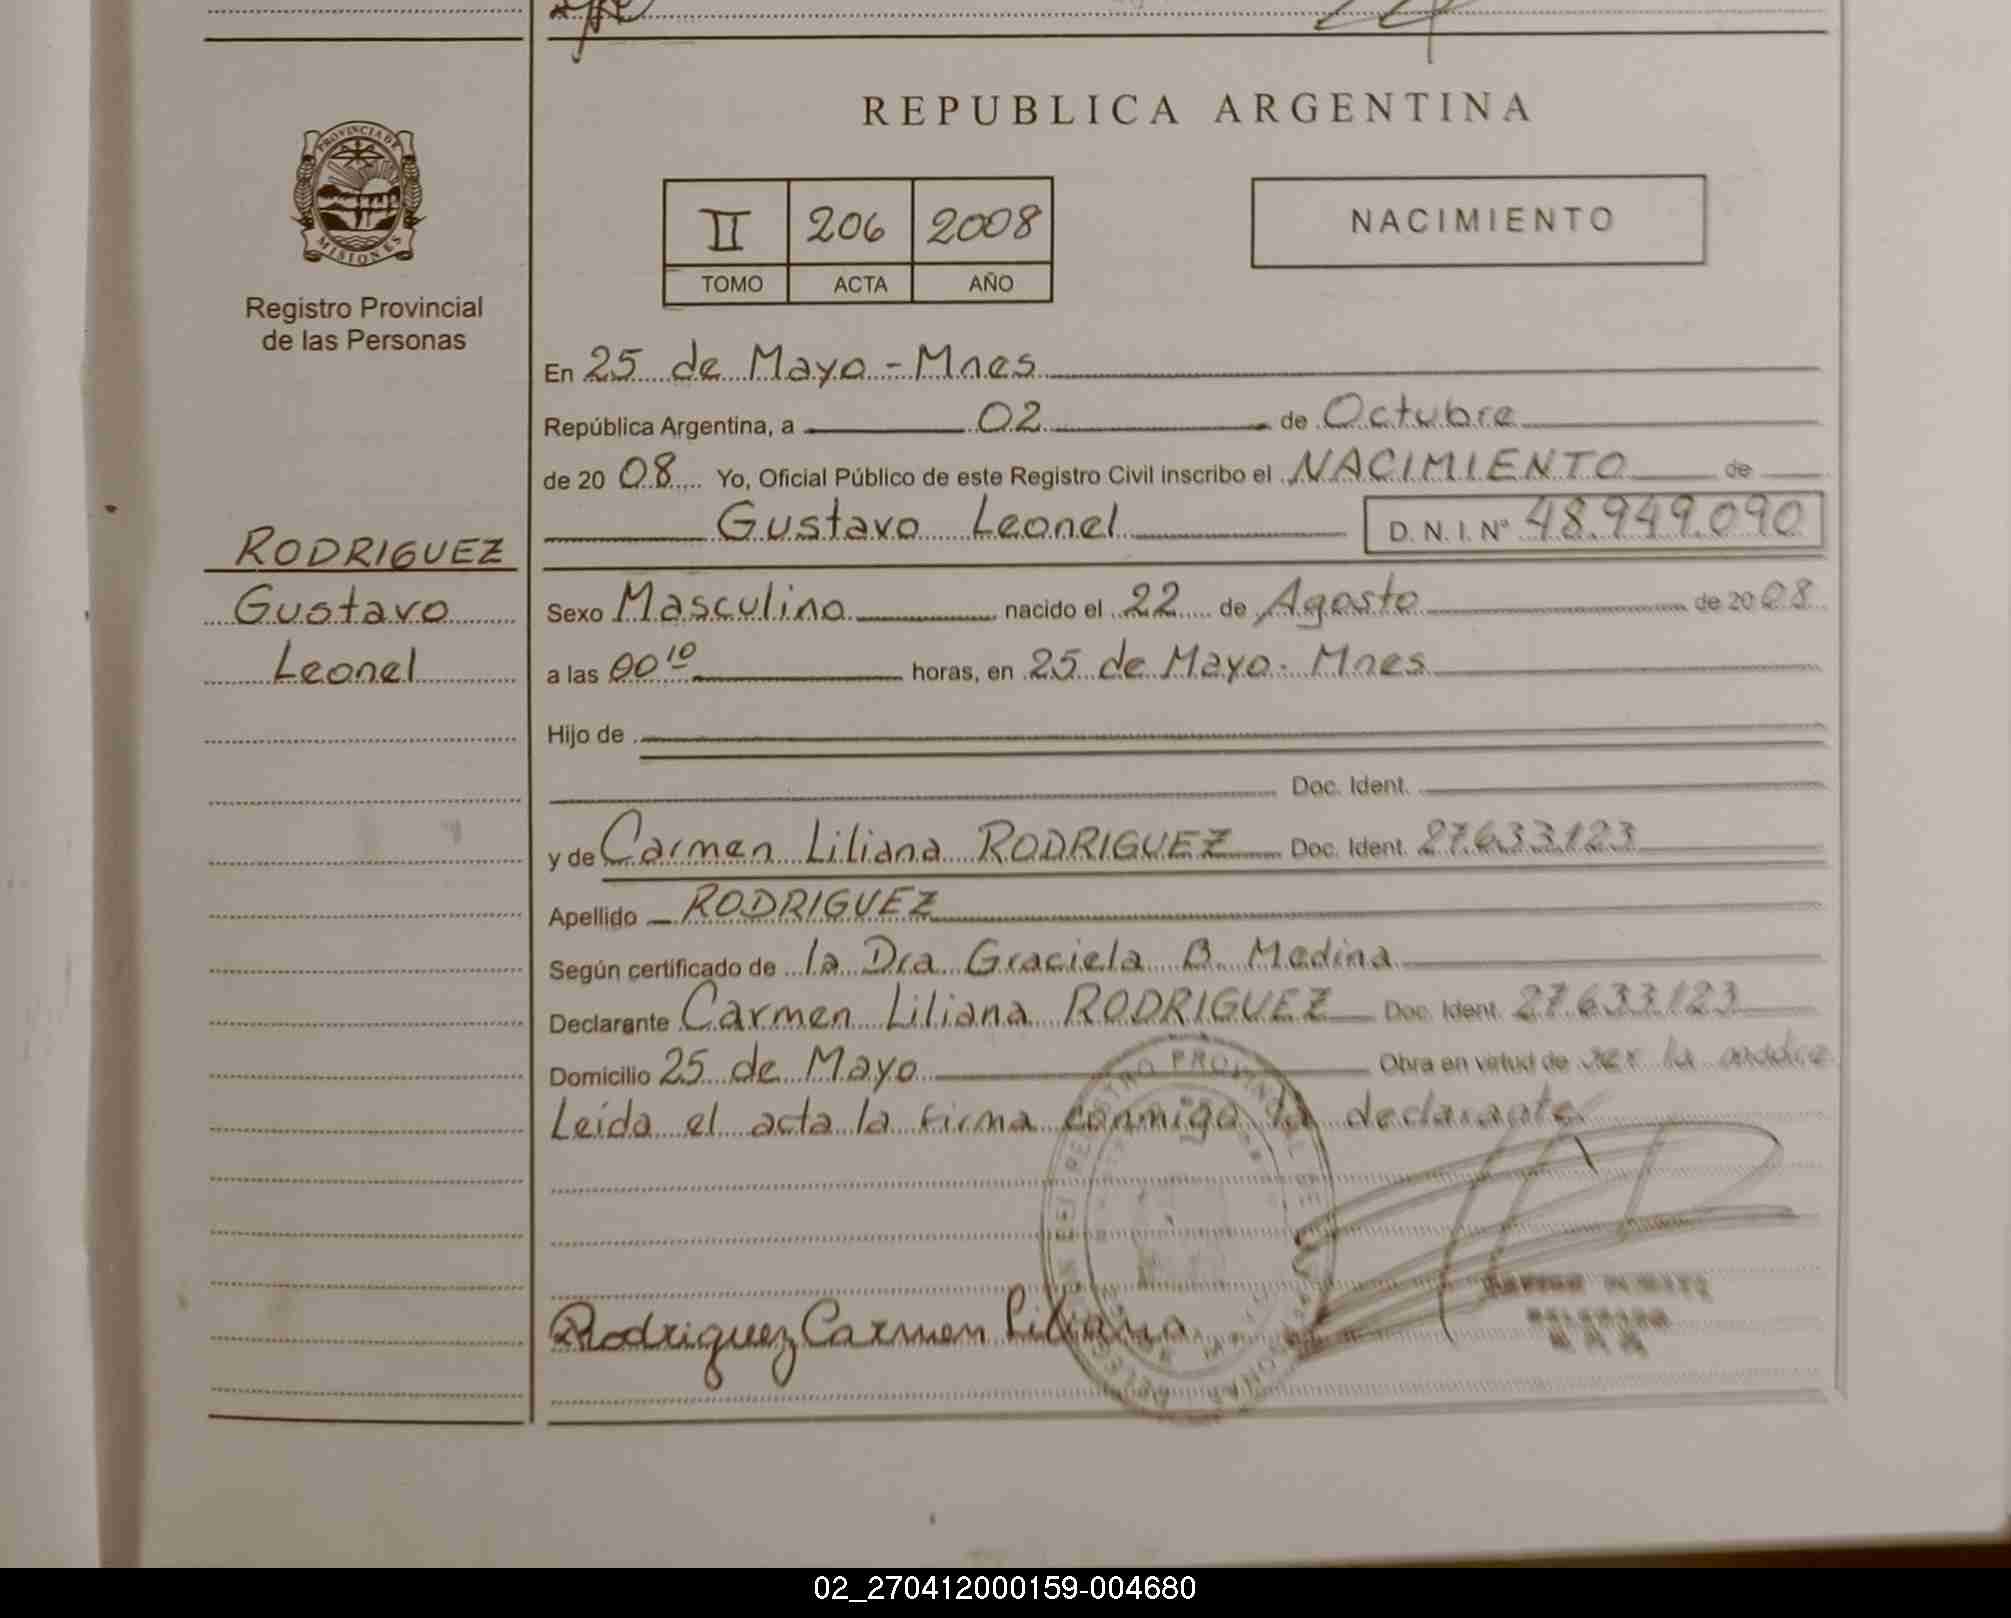 REPUBLICA ARGENTINA
PROVINCIA DE
MISIONES
Registro Provincial
de las Personas
II 206 2008
TOMO ACTA AÑO
NACIMIENTO
En 25 de Mayo - Mnes
República Argentina, a 02 de Octubre
de 20 08 Yo, Oficial Público de este Registro Civil inscribo el NACIMIENTO de
Gustavo Leonel D. N. I. Nº 48.949.090
RODRIGUEZ
Gustavo
Leonel
Sexo Masculino nacido el 22 de Agosto de 20 08
a las 00 10 horas, en 25 de Mayo - Mnes
Hijo de
Doc. Ident.
y de Carmen Liliana RODRIGUEZ Doc. Ident. 27.633.123
Apellido RODRIGUEZ
Según certificado de la Dra Graciela B. Medina
Declarante Carmen Liliana RODRIGUEZ Doc. Ident. 27.633.123
Domicilio 25 de Mayo Obra en virtud de ser la madre
Leída el acta la firma conmigo la declarante
Rodriguez Carmen Liliana
02_270412000159-004680